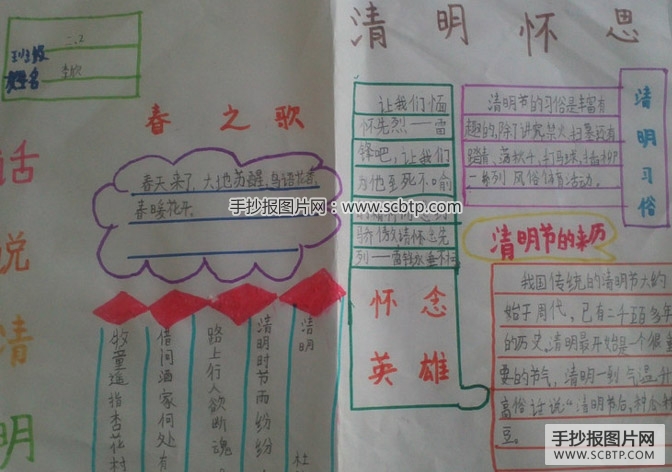 清明怀思
班级 二.2
姓名
话说清明
春之歌
春天来了,大地苏醒,鸟语花香,
春暖花开。
清明
清明时节雨纷纷
路上行人欲断魂
借问酒家何处有
牧童遥指杏花村
让我们缅
怀先烈——雷
锋吧,让我们
为他至死不渝
列——雷锋永垂不
怀念
英雄
清明习俗
清明节的习俗是丰富有
趣的,除了讲究禁火、扫墓还有
踏青、荡秋千、打马球、插柳
一系列风俗体育活动。
清明节的来历
我国传统的清明节大约
始于周代,已有二千五百多年
的历史,清明最开始是一个很重
要的节气,清明一到气温升
高俗话说“清明节后,种瓜种
豆。
手抄报图片网:www.scbtp.com
手抄报图片网
WWW.SCBTP.COM